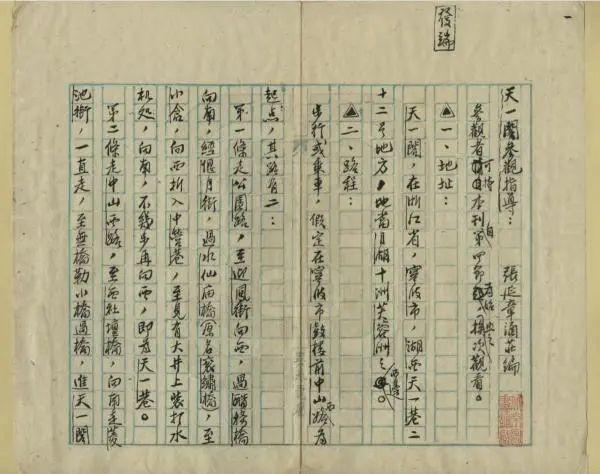 發端
天一閣參觀指導： 張延章涵莊編
參觀者可將本刊第四 觀看。
一、地址：
天一閣，在浙江省，寧波市，湖西天一巷二
十二号地方，地當月湖十洲芙蓉洲之西邊。
二、路程：
步行或乘車，假定在寧波市鼓樓前中山西路為
起点，其路有二：
第一條走公園路，至迎鳳街向西，過醋務橋
向南，經偃月街，過水仙廟橋原名袞繡橋，至
小倉，向西折入中營巷，至見有大井上裝打水
机処，向南，不幾步再向西，即為天一巷。
第二條走中山西路，至西社壇橋，向南走菱
池街，一直走，至無橋勒小橋過橋，進天一閣